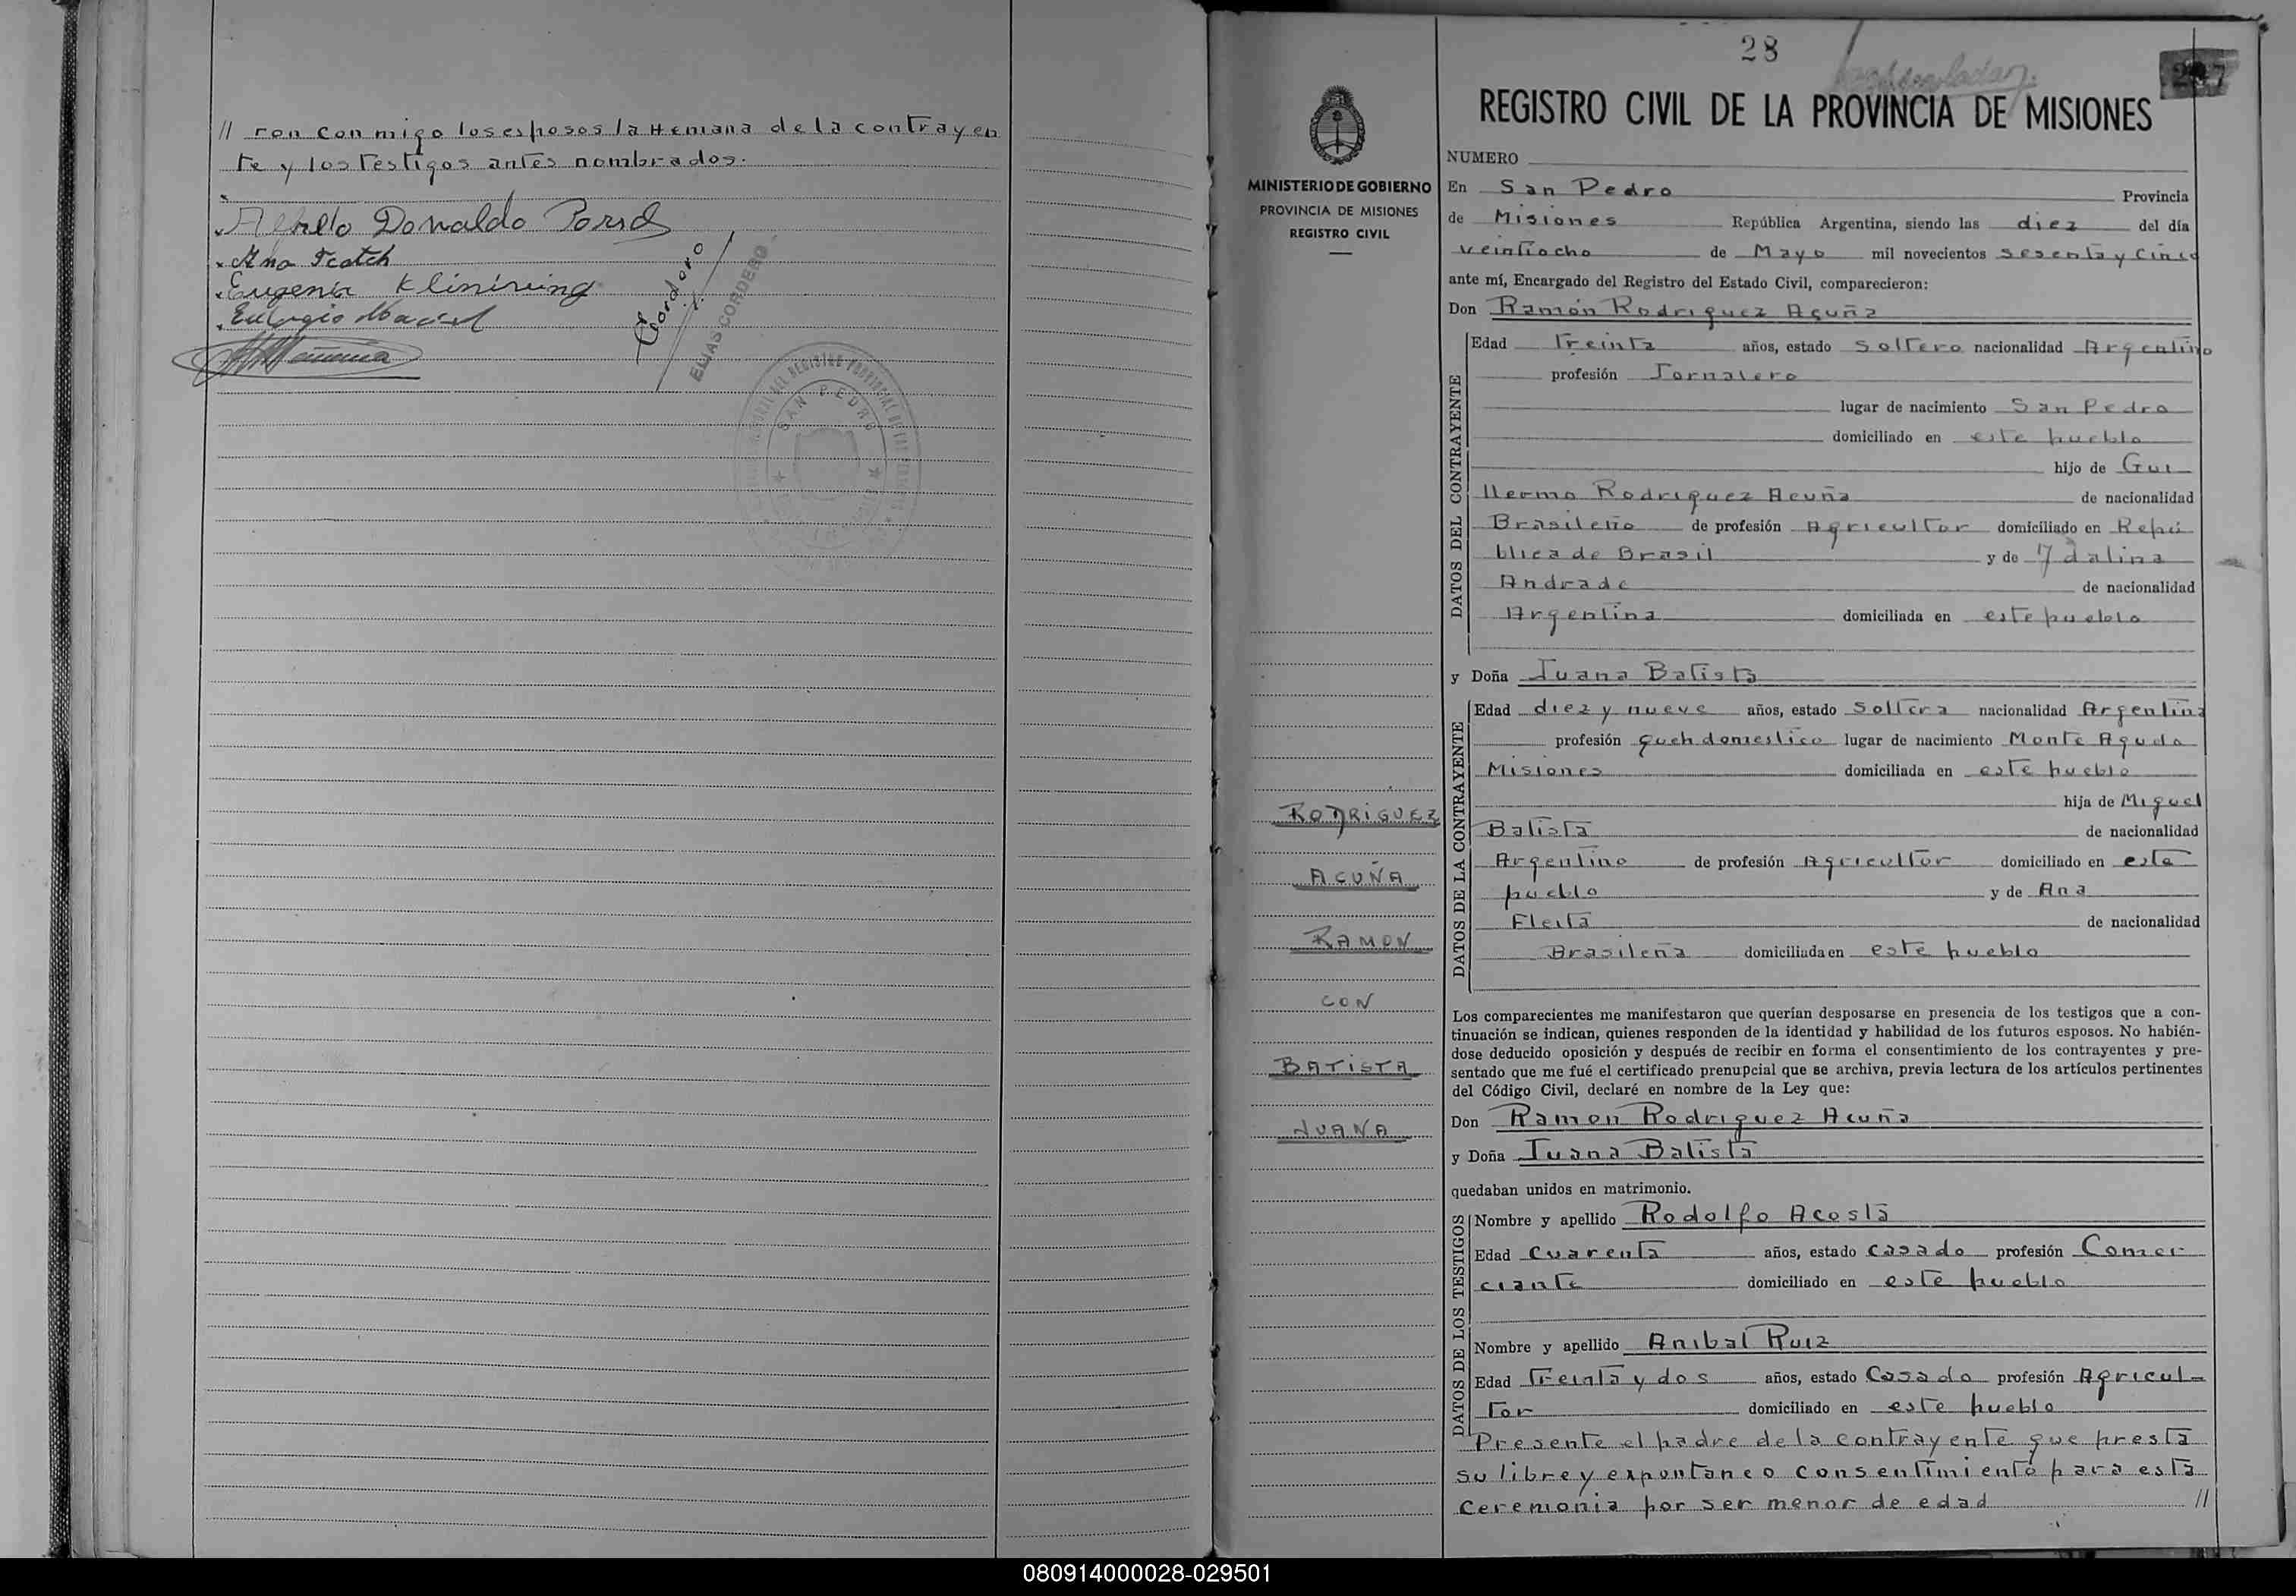 // ron con migo los esposos la Hemana de la contrayen
te y los testigos antes nombrados.
Donaldo
Ana
Eugenia
Eulogio
Cordero
ELIAS CORDERO
SAN PEDRO
28
REGISTRO CIVIL DE LA PROVINCIA DE MISIONES
MINISTERIO DE GOBIERNO
PROVINCIA DE MISIONES
REGISTRO CIVIL
RODRIGUEZ
ACUÑA
RAMON
CON
BATISTA
JUANA
NUMERO
En San Pedro Provincia
de Misiones República Argentina, siendo las diez del día
veintiocho de Mayo mil novecientos sesenta y Cinco
ante mí, Encargado del Registro del Estado Civil, comparecieron:
Don Ramón Rodriguez Acuña
DATOS DEL CONTRAYENTE
Edad Treinta años, estado Soltero nacionalidad Argentino
profesión Jornalero
lugar de nacimiento San Pedro
domiciliado en este pueblo
hijo de Gui
llermo Rodriguez Acuña de nacionalidad
Brasileño de profesión Agricultor domiciliado en Repú
blica de Brasil y de Ydalina
Andrade de nacionalidad
Argentina domiciliada en este pueblo
y Doña Juana Batista
DATOS DE LA CONTRAYENTE
Edad diez y nueve años, estado Soltera nacionalidad Argentina
profesión queh domestico lugar de nacimiento Monte Agudo
Misiones domiciliada en este pueblo
hija de Miguel
Batista de nacionalidad
Argentino de profesión Agricultor domiciliado en este
pueblo y de Ana
Fleita de nacionalidad
Brasileña domiciliada en este pueblo
Los comparecientes me manifestaron que querían desposarse en presencia de los testigos que a con-
tinuación se indican, quienes responden de la identidad y habilidad de los futuros esposos. No habién-
dose deducido oposición y después de recibir en forma el consentimiento de los contrayentes y pre-
sentado que me fué el certificado prenupcial que se archiva, previa lectura de los artículos pertinentes
del Código Civil, declaré en nombre de la Ley que:
Don Ramon Rodriguez Acuña
y Doña Juana Batista
quedaban unidos en matrimonio.
DATOS DE LOS TESTIGOS
Nombre y apellido Rodolfo Acosta
Edad Cuarenta años, estado casado profesión Comer
ciante domiciliado en este pueblo
Nombre y apellido Anibal Ruiz
Edad Treinta y dos años, estado Casado profesión Agricul-
tor domiciliado en este pueblo
Presente el padre de la contrayente que presta
su libre y espontaneo consentimiento para esta
ceremonia por ser menor de edad //
080914000028-029501